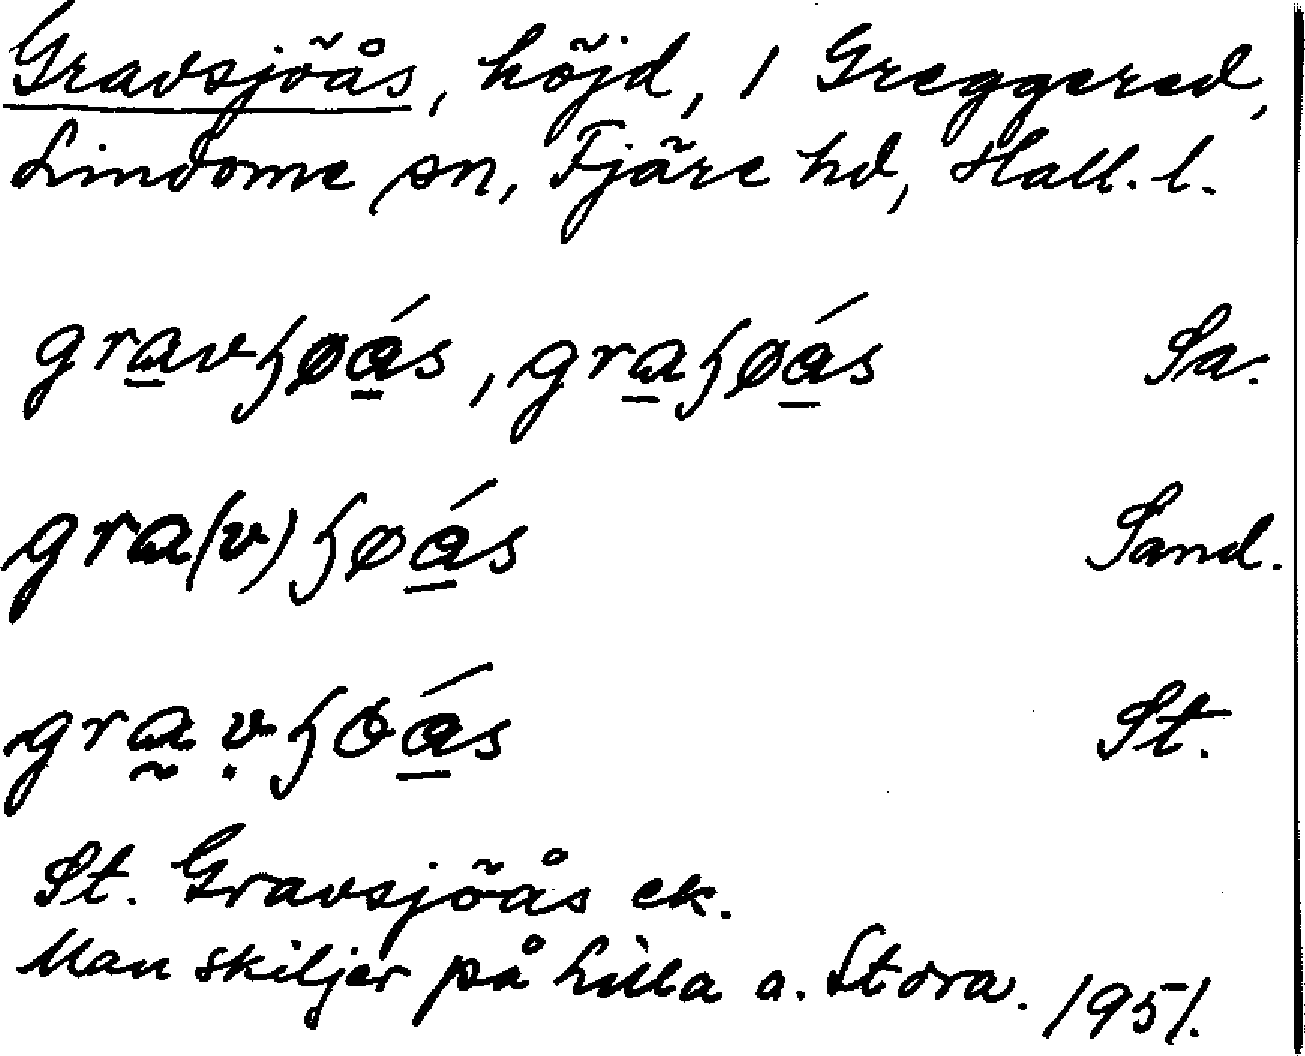 Gravsjöås, höjd, 1 Greggered,
Lindome sn, Fjäre hd, Hall. l.
gravʂøás, graʂøás Sa.
gra(v)ʂøás Sand.
gra̰ṿʂɵás St.
St. Gravsjöås ek.
Man skiljer på Lilla o. Stora. 1951.